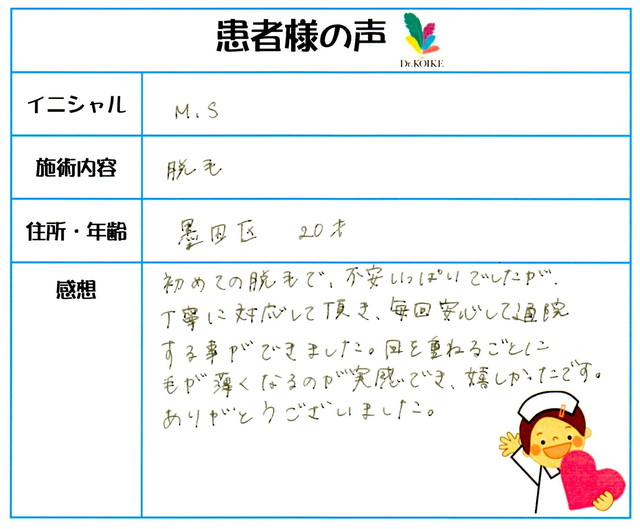 患者様の声
Dr.KOIKE
イニシャル
M.S
施術内容
脱毛
住所・年齢
墨田区 20才
感想
初めての脱毛で、不安いっぱいでしたが、
丁寧に対応して頂き、毎回安心して通院
する事ができました。回を重ねるごとに
毛が薄くなるのが実感でき、嬉しかったです。
ありがとうございました。